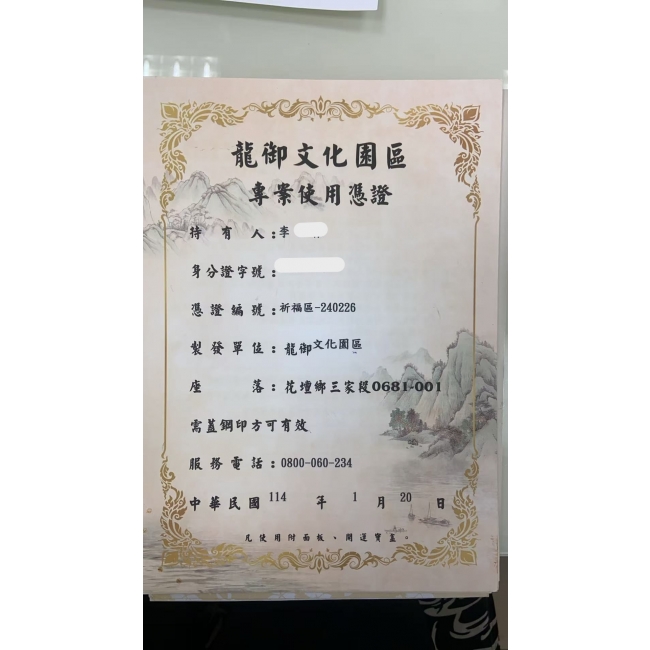 龍御文化園區
專案使用憑證
持有人:李
身分證字號:
憑證編號:祈福區-240226
製發單位:龍御文化園區
座落:花壇鄉三家段0681-001
需蓋鋼印方可有效
服務電話:0800-060-234
中華民國114年1月20日
凡使用附面板、開運寶蓋。